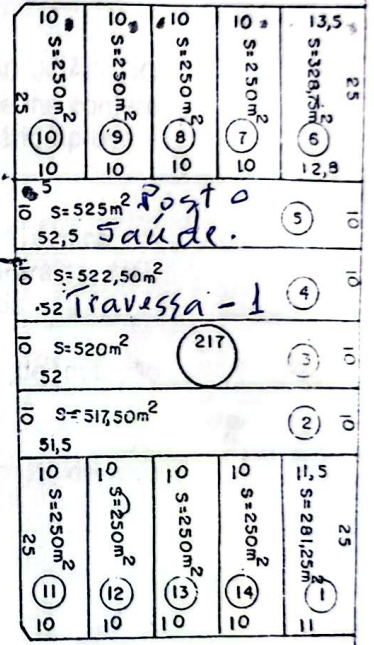 10 10 10 10 13,5
S=250m² S=250m² S=250m² S=250m² S=328,75m²
25 25
10 9 8 7 6
10 10 10 10 12,8
5
10 S=525m² Posto 5 10
52,5 Saúde.
10 S=522,50m² 4 10
52 Travessa-1
10 S=520m² 217 3 10
52
10 S=517,50m² 2 10
51,5
10 10 10 10 11,5
S=250m² S=250m² S=250m² S=250m² S=281,25m²
25 25
11 12 13 14 1
10 10 10 10 11